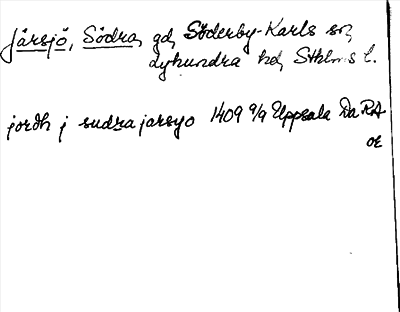 Järsjö, Södra, gd, Söderby-Karls sn,
Lyhundra hd, Sthlms l.
jordh j sudra jarsyo 1409 9/9 Uppsala Da RA
or